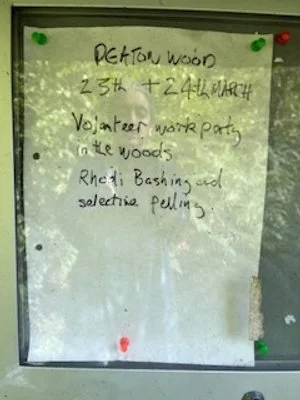 DEATON WOOD
23th + 24th MARCH
Volunteer work party
in the woods
Rhodi Bashing and
selective felling.